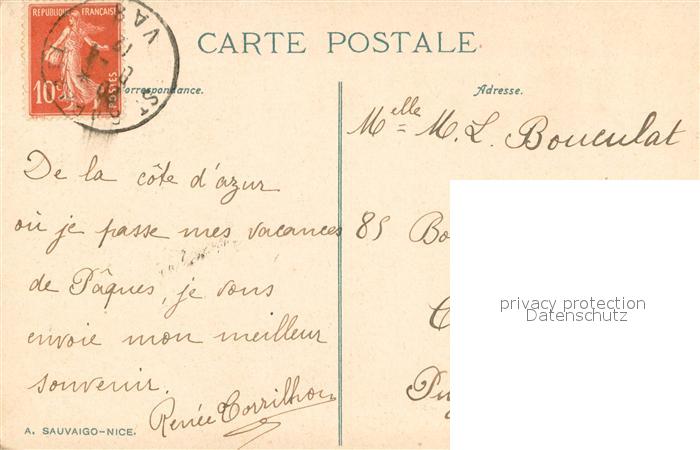 REPUBLIQUE FRANÇAISE
10c
POSTES
VAR
CARTE POSTALE
Correspondance.
Adresse.
De la côte d'azur
où je passe mes vacances
de Pâques, je vous
envoie mon meilleur
souvenir.
Renée Corrilhon
A. SAUVAIGO-NICE.
Melle M. L. Bouculat
85 Bo
privacy protection
Datenschutz